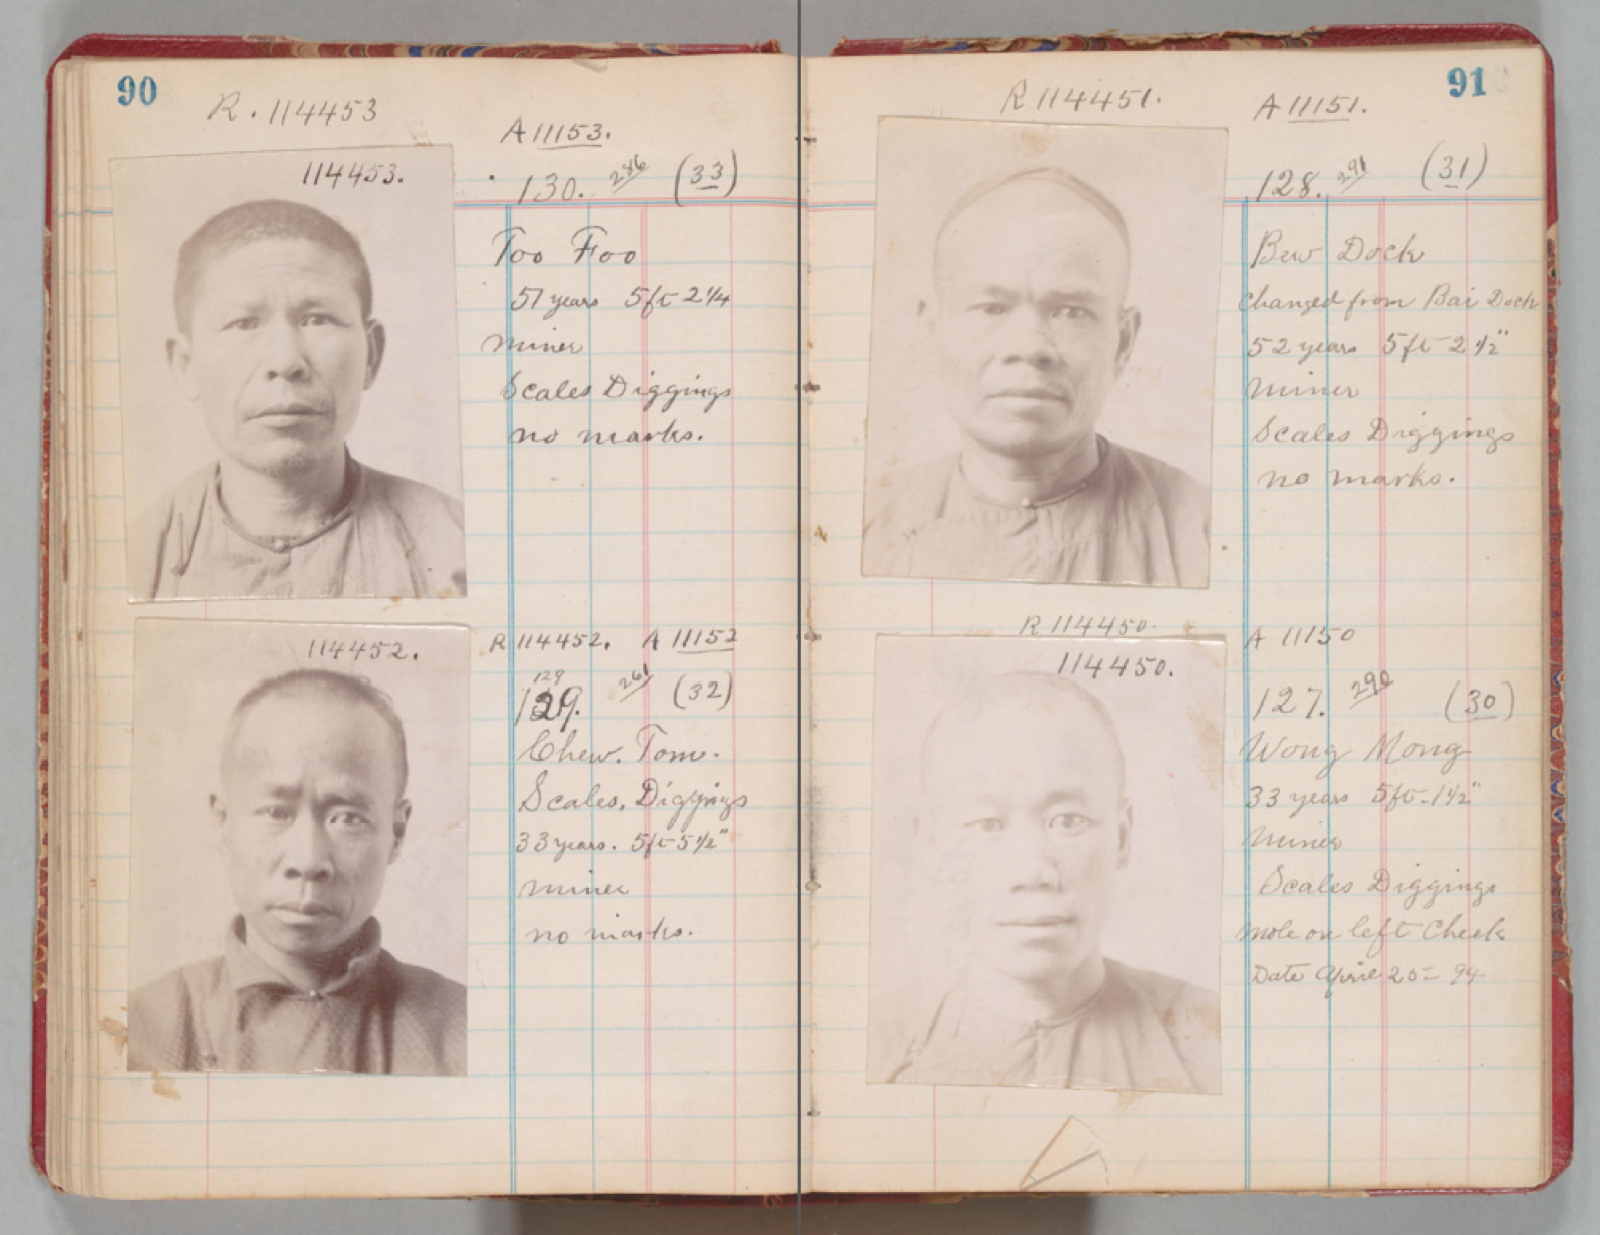 90
R. 114453
114453.
A 11153.
130. 286 (33)
Too Foo
57 years 5ft 2 1/4
miner
Scales Diggings
no marks.
114452.
R 114452. A 11152
129
129. 261 (32)
Chew. Tom.
Scales. Diggings
33 years. 5ft 5 1/2"
miner
no marks.
91
R 114451.
A 11151.
128. 291 (31)
Bew Dock
Changed from Bai Dock
52 years 5ft 2 1/2"
miner
Scales Diggings
no marks.
R 114450.
114450.
A 11150
127. 290 (30)
Wong Mong
33 years 5ft-1 1/2"
Miner
Scales Diggings
mole on left Cheek
Date April 25- 94